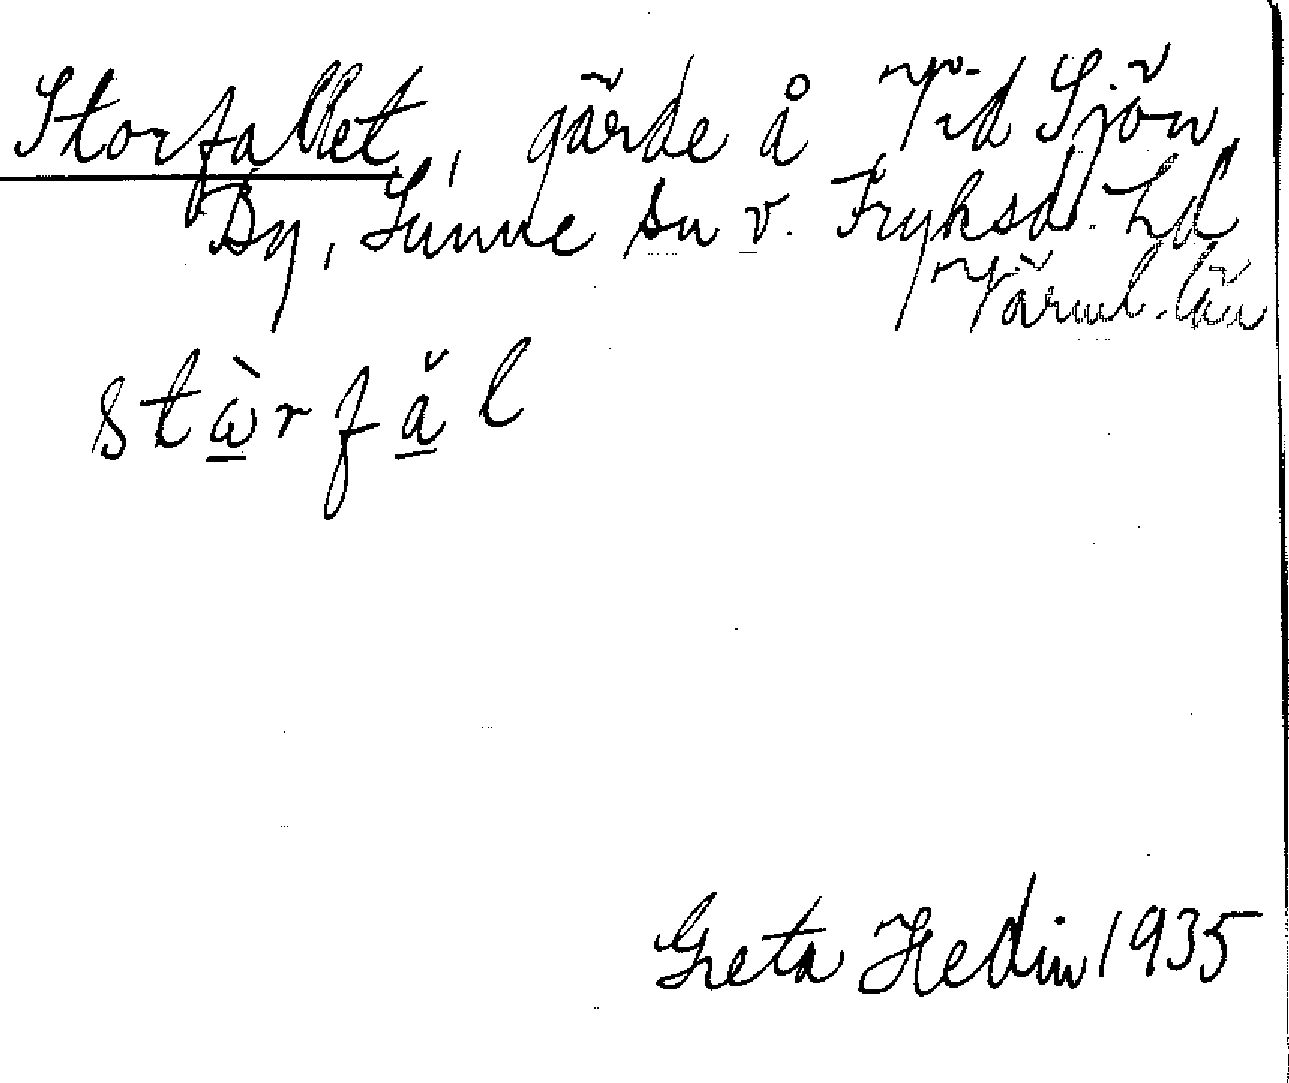 Storfallet, gärde å Vid Sjön,
By, Sunne sn v. Fryksd. hd
Värml. län
stẁ̲rfă̲l
Greta Hedin 1935